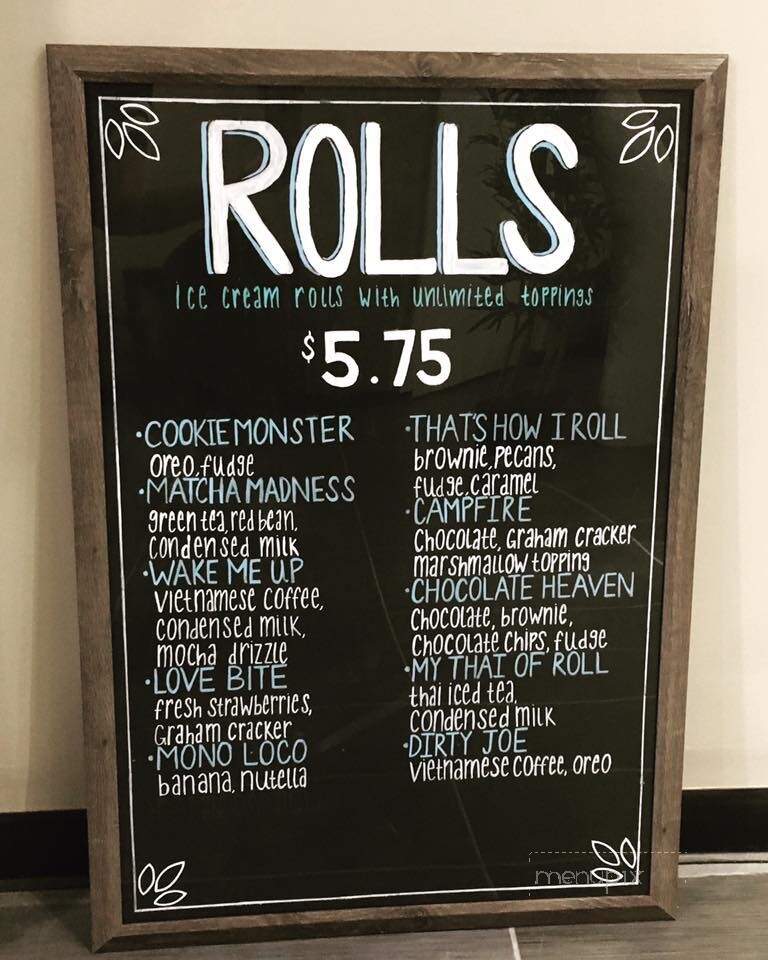 ROLLS
Ice cream rolls with unlimited toppings
$5.75
·COOKIE MONSTER
oreo, fudge
·MATCHA MADNESS
green tea, red bean,
condensed milk
·WAKE ME UP
vietnamese coffee,
condensed milk,
mocha drizzle
·LOVE BITE
fresh strawberries,
Graham cracker
·MONO LOCO
banana, nutella
·THAT'S HOW I ROLL
brownie, pecans,
fudge, caramel
·CAMPFIRE
Chocolate, Graham cracker
marshmallow topping
·CHOCOLATE HEAVEN
Chocolate, brownie,
Chocolate chips, fudge
·MY THAI OF ROLL
thai iced tea,
condensed milk
·DIRTY JOE
vietnamese coffee, oreo
menupix